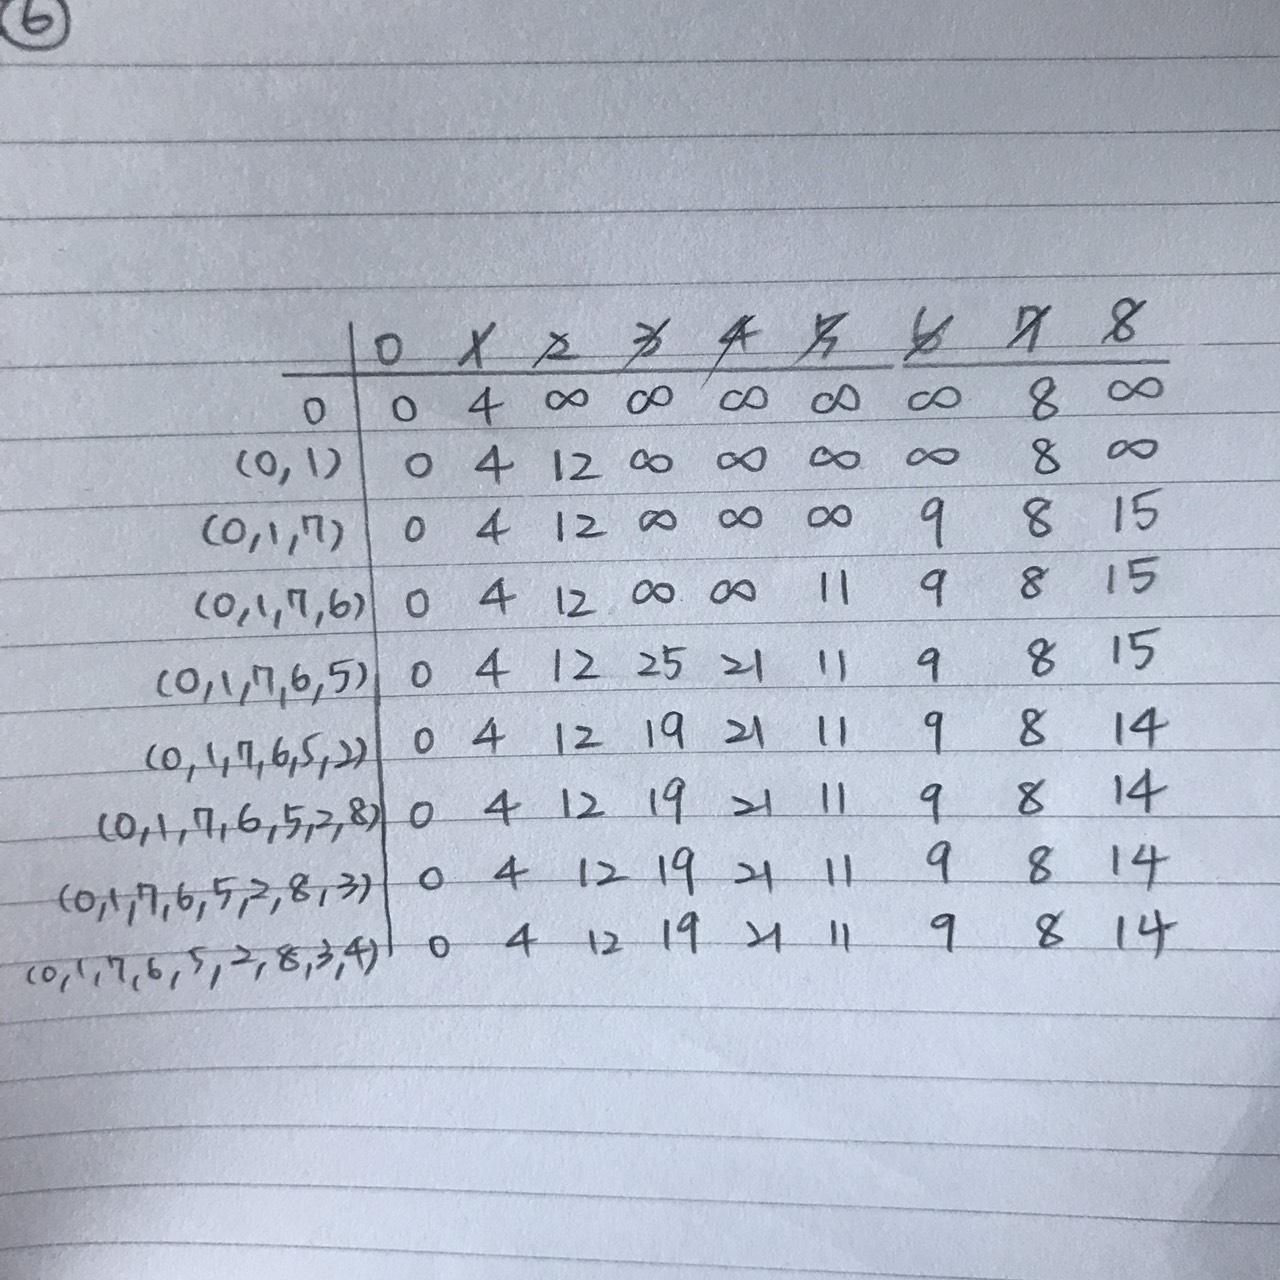 6
0 1 2 3 4 5 6 7 8
0 0 4 ∞ ∞ ∞ ∞ ∞ 8 ∞
(0,1) 0 4 12 ∞ ∞ ∞ ∞ 8 ∞
(0,1,7) 0 4 12 ∞ ∞ ∞ 9 8 15
(0,1,7,6) 0 4 12 ∞ ∞ 11 9 8 15
(0,1,7,6,5) 0 4 12 25 21 11 9 8 15
(0,1,7,6,5,2) 0 4 12 19 21 11 9 8 14
(0,1,7,6,5,2,8) 0 4 12 19 21 11 9 8 14
(0,1,7,6,5,2,8,3) 0 4 12 19 21 11 9 8 14
(0,1,7,6,5,2,8,3,4) 0 4 12 19 21 11 9 8 14